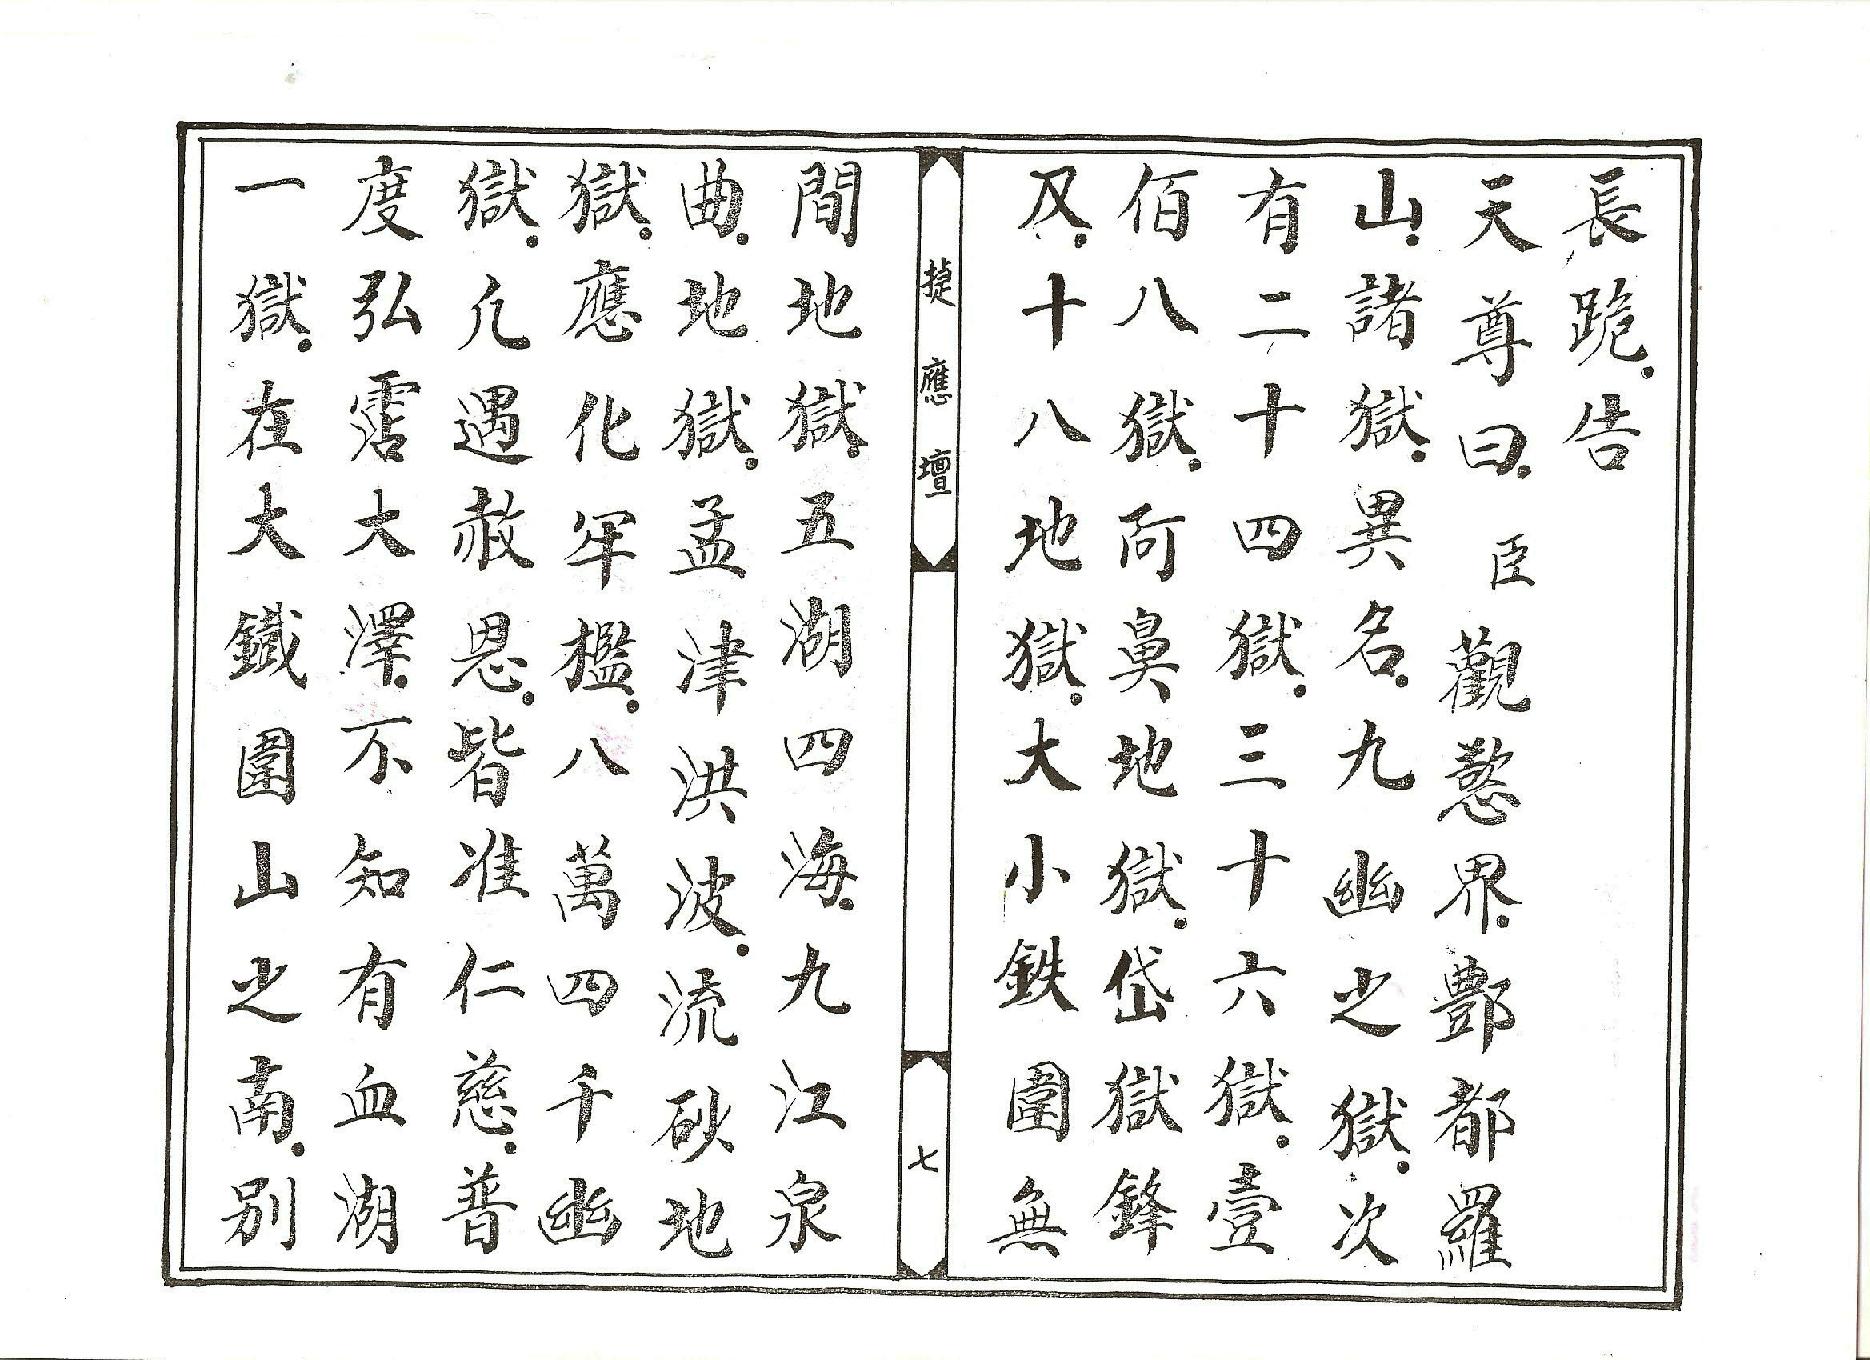 長跪.告
天尊曰.臣觀慾界.酆都羅
山.諸獄.異名.九幽之獄.次
有二十四獄.三十六獄.壹
佰八獄.阿鼻地獄.岱獄鋒
刄.十八地獄.大小鉄圍無
㨗應壇
七
間地獄.五湖四海.九江泉
曲.地獄.孟津洪波.流砂地
獄.應化牢檻.八萬四千幽
獄.凢遇赦恩.皆准仁慈.普
度弘霑大澤.不知有血湖
一獄.在大鐵圍山之南.別